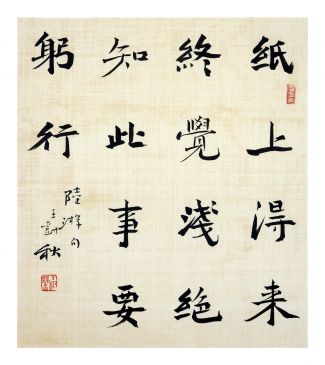 紙上淂来
終覺淺絕
知此事要
躬行
陸游句
王 秋